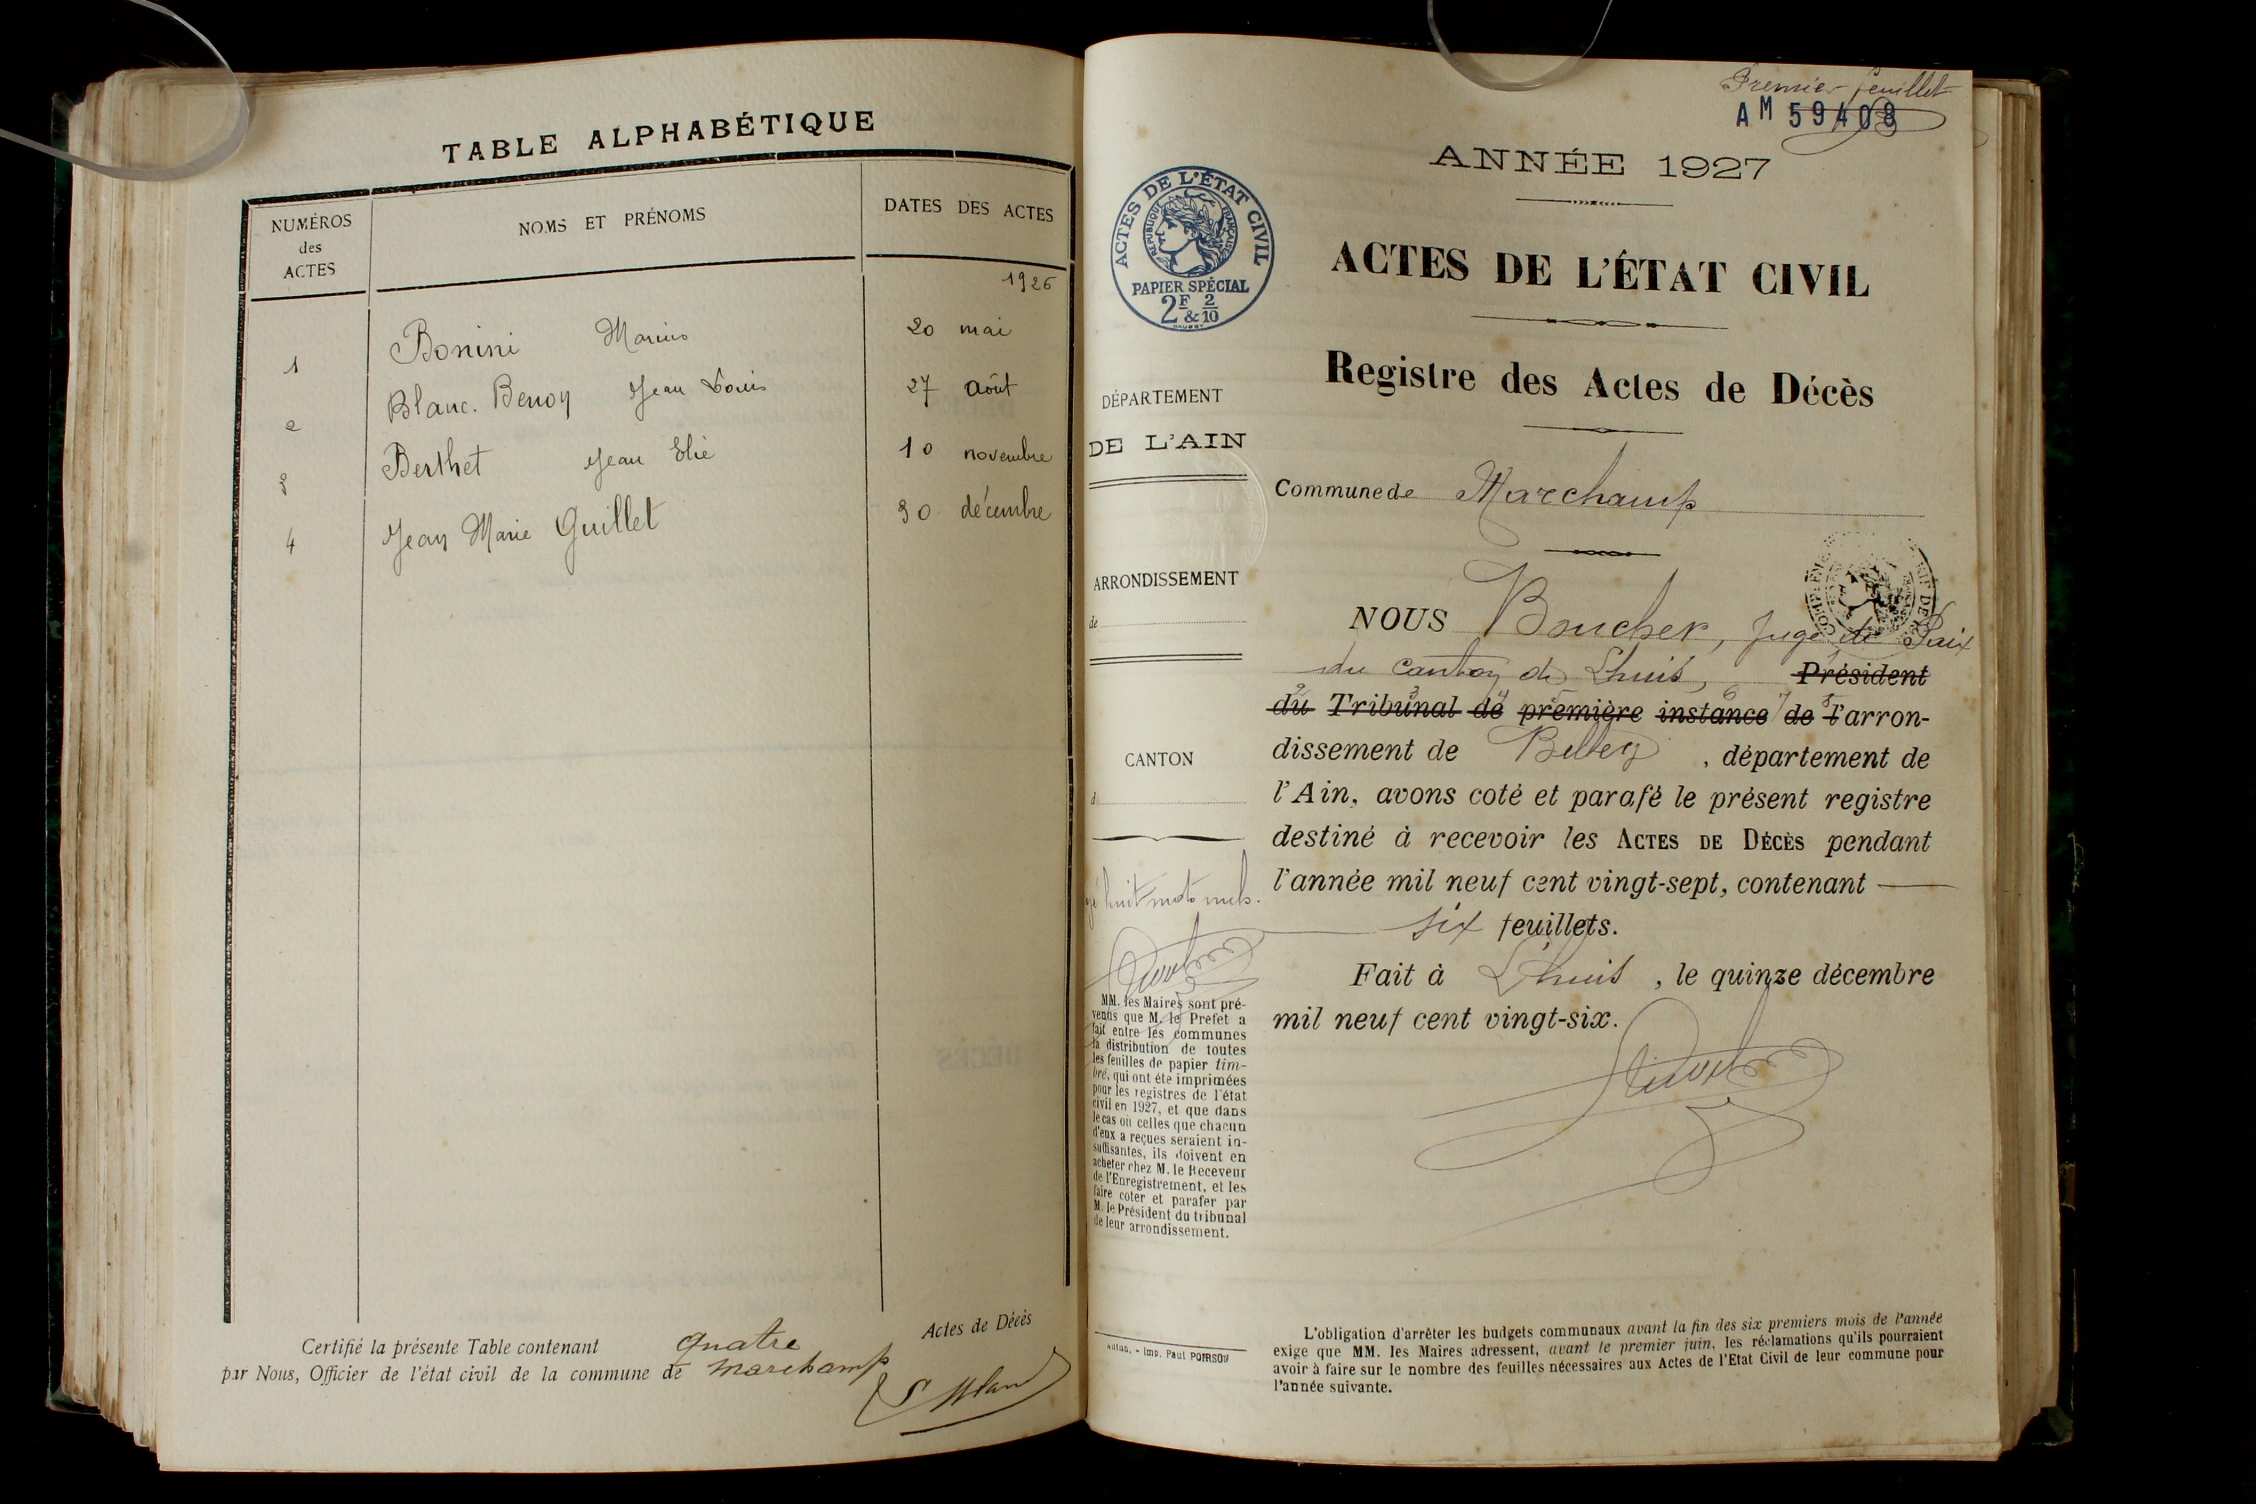 TABLE ALPHABÉTIQUE
NUMÉROS
des
ACTES
NOMS ET PRÉNOMS
DATES DES ACTES
1926
1 Bonini Marius 20 mai
2 Blanc. Benoy Jean Louis 27 août
3 Berthet Jean Elie 10 novembre
4 Jean Marie Guillet 30 décembre
Certifié la présente Table contenant quatre Actes de Décès
par Nous, Officier de l'état civil de la commune de Marchamp
Premier feuillet
AM 59408
ANNÉE 1927
ACTES DE L'ÉTAT CIVIL
RÉPUBLIQUE FRANÇAISE
PAPIER SPÉCIAL
2F & 2/10
ACTES DE L'ÉTAT CIVIL
Registre des Actes de Décès
DÉPARTEMENT
DE L'AIN
Commune de Marchamp
ARRONDISSEMENT
de
CANTON
d
NOUS Boucher, Juge de Paix
du canton de Lhuis, Président
du Tribunal de première instance de l'arron-
dissement de Belley, département de
l'Ain, avons coté et parafé le présent registre
destiné à recevoir les ACTES DE DÉCÈS pendant
l'année mil neuf cent vingt-sept, contenant
six feuillets.
Fait à Lhuis, le quinze décembre
mil neuf cent vingt-six.
huit mots nuls.
MM. les Maires sont pré-
venus que M. le Préfet a
fait entre les communes
la distribution de toutes
les feuilles de papier tim-
bré, qui ont été imprimées
pour les registres de l'état
civil en 1927, et que dans
le cas où celles que chacun
d'eux a reçues seraient in-
suffisantes, ils doivent en
acheter chez M. le Receveur
de l'Enregistrement, et les
faire coter et parafer par
M. le Président du tribunal
de leur arrondissement.
Imp. Paul POIRSON
L'obligation d'arrêter les budgets communaux avant la fin des six premiers mois de l'année
exige que MM. les Maires adressent, avant le premier juin, les réclamations qu'ils pourraient
avoir à faire sur le nombre des feuilles nécessaires aux Actes de l'Etat Civil de leur commune pour
l'année suivante.